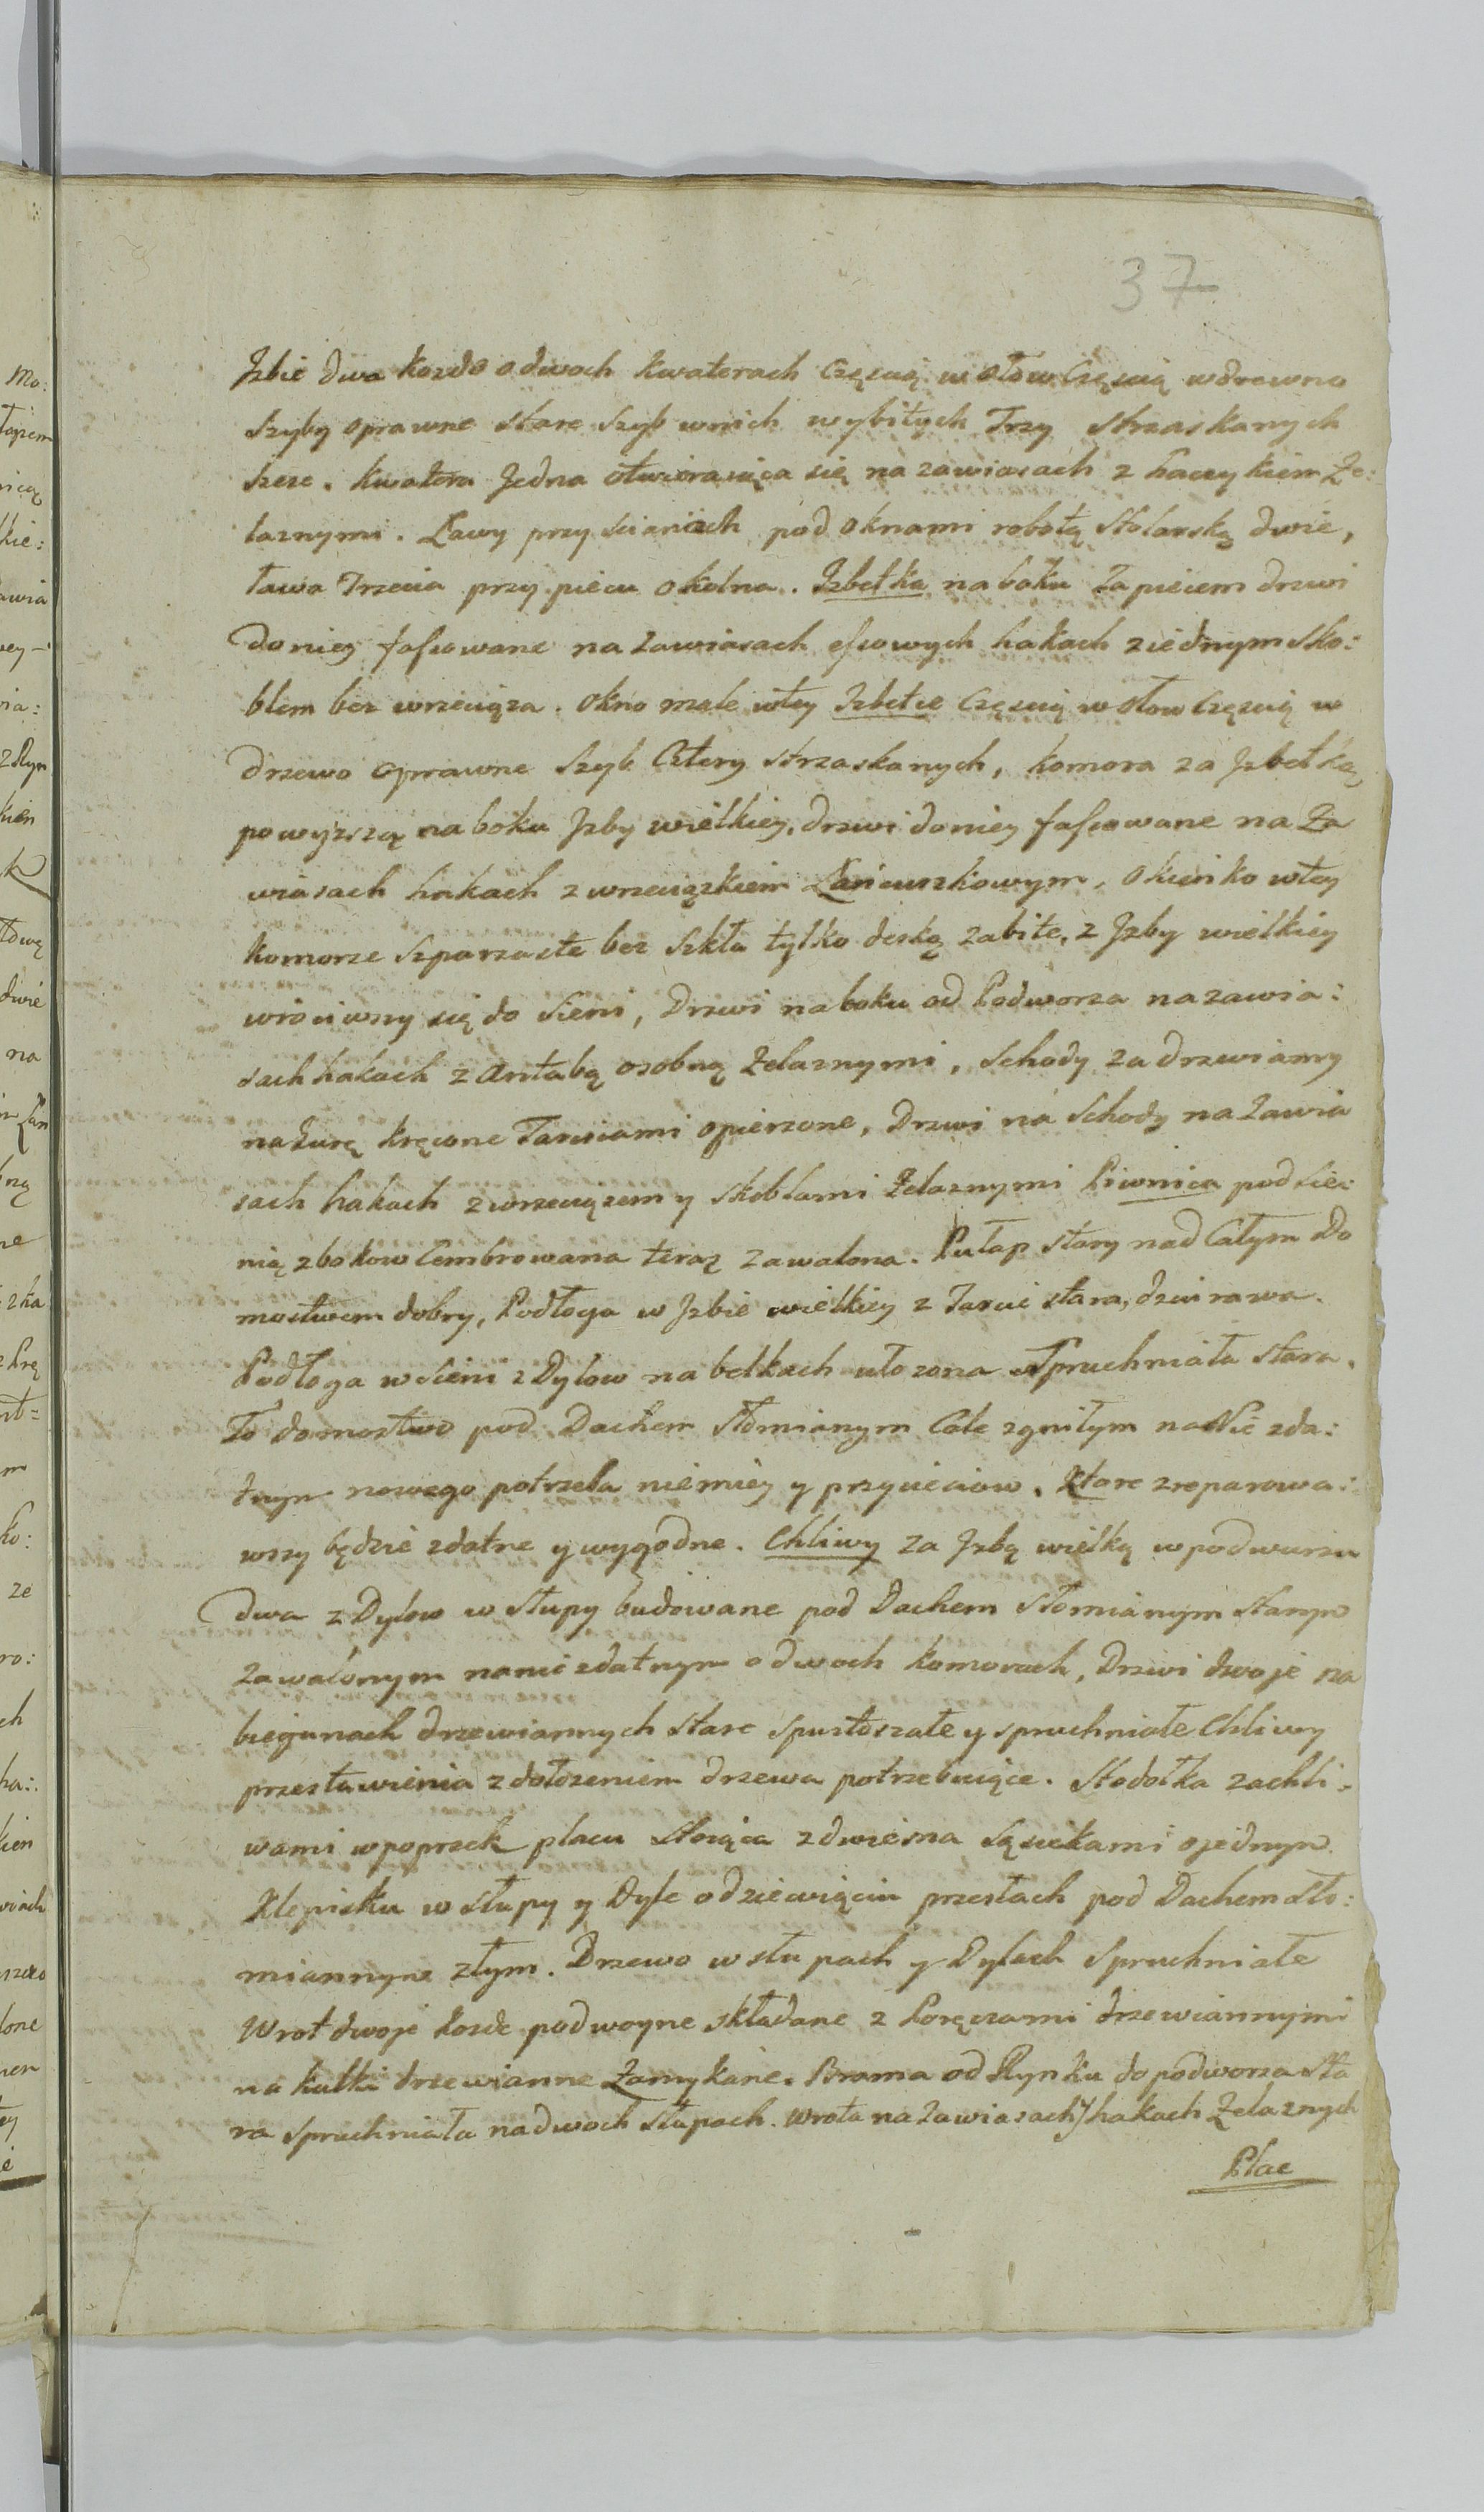 37
Izbie dwa kozde o dwoch kwaterach Częscią w ołow Częscią w drzewno
Szyby oprawne stare Szyb wnich wybitych Trzy strzaskanych
szesc. kwatera Jedna otwieraiąca się na zawiasach z haczykiem Że:
laznymi. Ławy przy scianach pod oknami robotą Stolarską dwie,
ława Trzecia przy piecu okolna. Izbetka na boku Zapiecem drzwi
do niey fassowane na zawiasach essowych hakach ziednym Sko:
blem bez wrzeciąza. Okno małe wtey Izbetce Częscią w ołow Częscią w
Drzewo oprawne Szyb Cztery strzaskanych, komora za Izbetką
powyzszą na boku Izby wielkiey, drzwi do niey fassowane na Za
wiasach hakach z wrzeciązkiem Łancuszkowym, Okienko wtey
komorze Szparzaste bez Szkła tylko deską zabite, z Izby wielkiey
wrociwszy się do Sieni, Drzwi na boku od Podworza na zawia:
sach hakach z Antabą osobną Żelaznymi, Schody za drzwiamy
na Turę kręcone Tarciami opierzone, Drzwi na Schody na Zawia
sach hakach z wrzeciązem y skoblami Żelaznymi Piwnica pod Sie:
nią z bokow Cembrowana teraz zawalona. Pułap stary nad Całym Do
mostwem dobry, Podłoga w Izbie wielkiey z Tarcic stara, dziurawa.
Podłoga w Sieni z Dylow na belkach ułozona Spruchniała stara.
To domostwo pod Dachem Słomianym Cale zgniłym na Nic zda:
tnym nowego potrzeba niemniey y przycieciow. Ktore zreparowa:
wszy będzie zdatne y wygodne. Chliwy za Izbą wielką w podwurzu
Dwa z Dylow w Słupy budowane pod Dachem Słomianym Starym
zawalonym nanic zdatnym o dwoch komorach, Drzwi dwoje na
biegunach drzewiannych stare spustoszałe y spruchniałe Chliwy
przestawienia z dołozeniem drzewa potrzebuiące. Stodołka za chli:
wami w poprzek placu Stoiąca z dwiema Sąsiekami o jednym
Klepisku w słupy y Dyle o dziewięciu przesłach pod Dachem Sło:
miannym złym. Drzewo w słupach y Dylach Spruchniałe
Wrot dwoje kozde podwoyne składane z Poręczami drzewiannymi
na kulki drzewianne Zamykane. Brama od Rynku do podworza Sta
ra Spruchniała na dwoch Słupach. wrota na Zawiasach y hakach Żelaznych
Plac